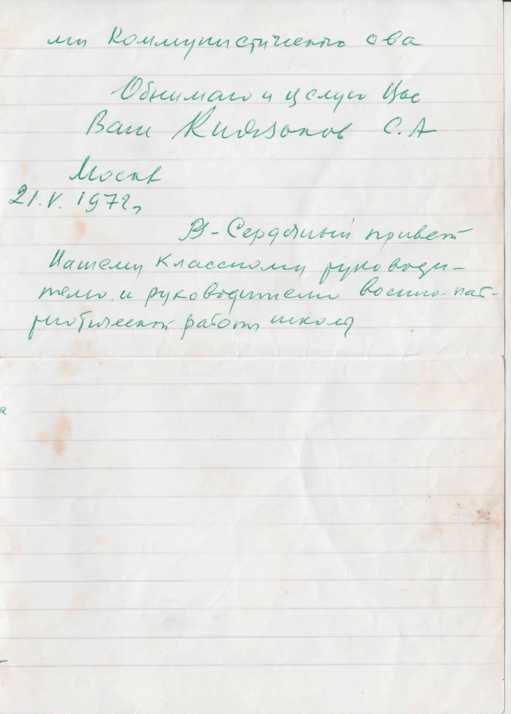 ми Коммунистического о-ва
Обнимаю и целую Вас
Ваш С.А
Москва
21.V.1972г,
Сердечный привет
Вашему классному руководи-
телю и руководителю военно-пат-
риотической работы школы